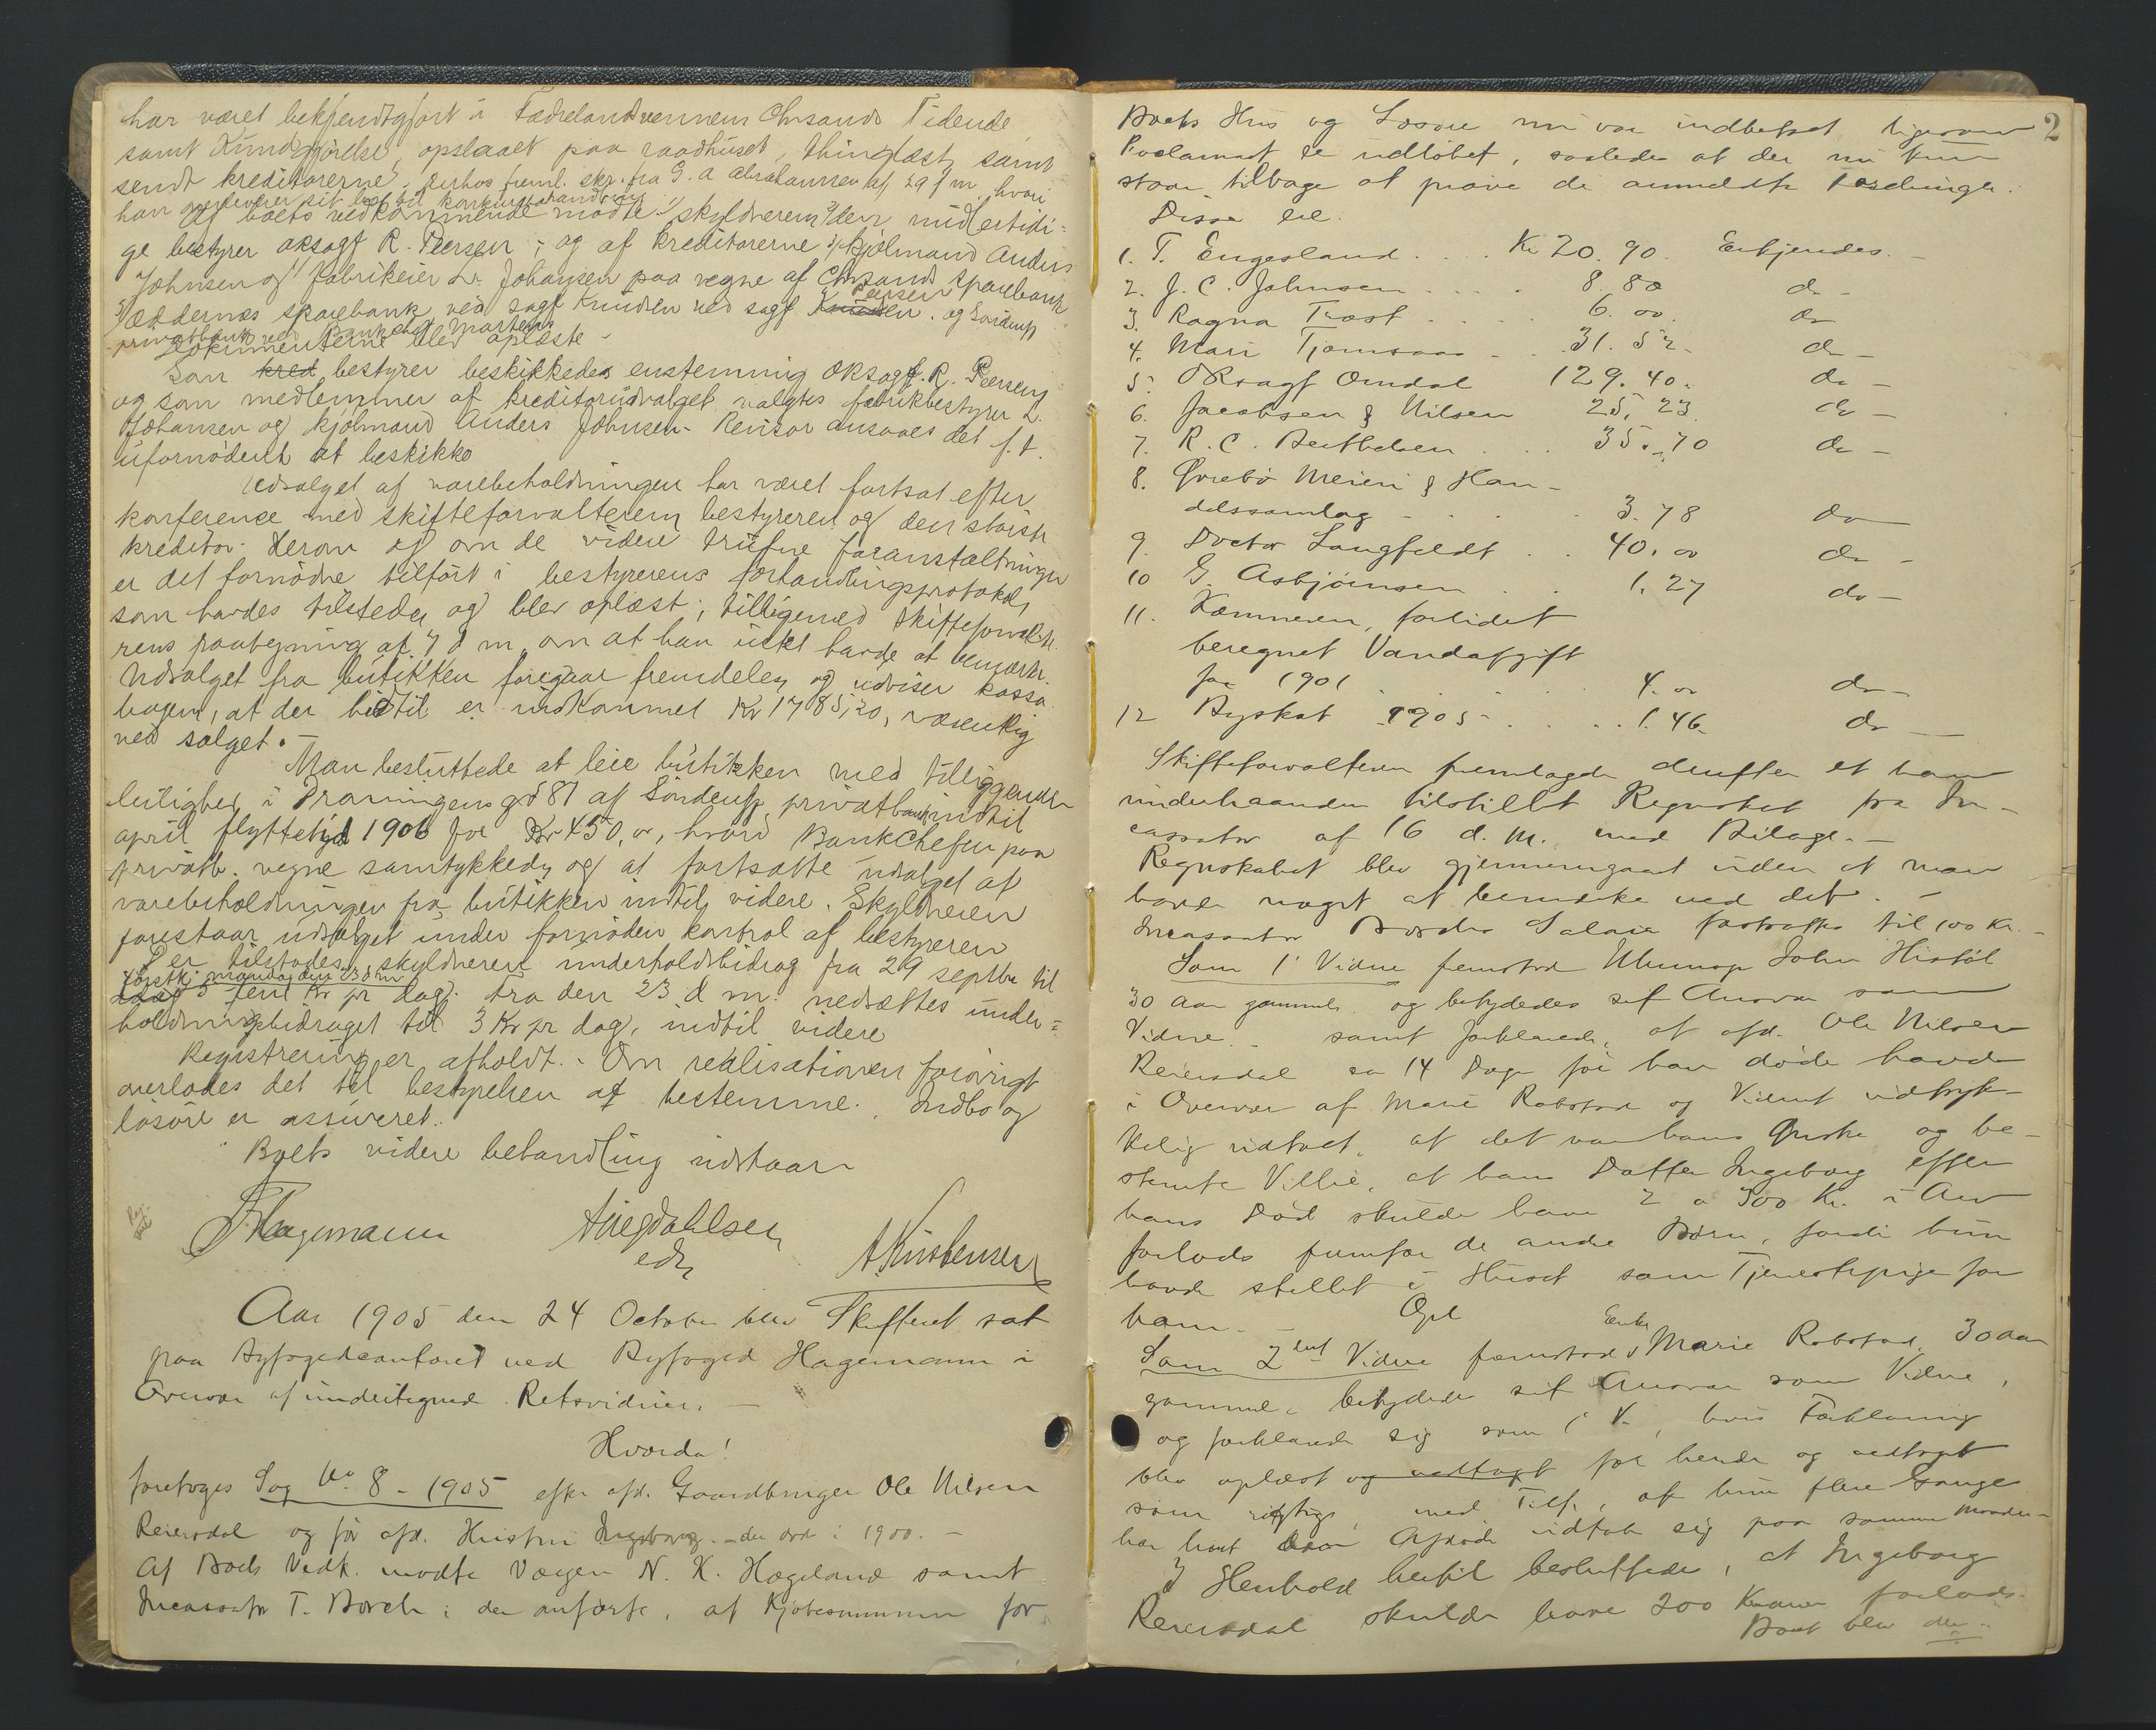 har været bekjendtgjort i Fædrelandsvennen Chrsands Tidende
samt Kundgjørelse, opslaaet paa raadhuset, thinglæst, samt
sendt kreditorerne. Derhos freml. skr. fra G. A. Abrahamsen af 29 f m, hvori
han overleverer sit bo til konkursbehandling
Af boets vedkommende mødte: skyldneren, den midlertidi=
ge bestyrer oksagf R. Peersen; og af kreditorerne 1/ kjølmand Anders
Johnsen og 2/ fabrikeier L. Johansen paa vegne af Chrsands Sparebank
3/ Oddernes sparebank ved sagf Knudsen ved sagf Knudsen Peersen. og Søndenfj
privatbank ved Bankchef Mortens
Dokumenterne blev oplæste -
Som kred bestyrer beskikkedes enstemmig Oksagf. R. Peersen
og som medlemmer af kreditorudvalget valgtes fabrikbestyrer L.
Johansen og kjølmand Anders Johnsen. Revisor ansaaes det f. t.
ufornødent at beskikke
Udsalget af varebeholdningen har været fortsat efter
konference med skifteforvalteren, bestyreren og den største
kreditor. Herom og om de videre trufne foranstaltninger
er det fornødne tilført i bestyrerens forhandlingsprotokol,
som havdes tilstede, og blev oplæst; tilligemed skifteforvalte
rens paategning af 7 d m om at han intet havde at bemærke.
Udsalget fra butikken foregaar fremdeles, og udviser kassa
bogen, at der hidtil er indkommet Kr 1785,20, væsentlig
ved salget. -
Man besluttede at leie butikken med tilliggende
leilighed i Dronningens gd 87 af Søndenfj privatbank indtil
april flyttetid 1906 for Kr 450,00, hvori Bankchefen paa
privatb. vegne samtykkede, og at fortsætte udsalget af
varebeholdningen fra butikken indtil videre. Skyldneren
forestaar udsalget under fornøden kontrol af bestyreren
Der tilstodes skyldneren underholdsbidrag fra 29 septbr til
førstk. mandag den 23 d m
idag 5 fem Kr pr dag. Fra den 23 d m. nedsættes under=
holdningsbidraget til 3 Kr pr dag, indtil videre
Registrering er afholdt. - Om realisationen forøvrigt
overlodes det til bestyrelsen at bestemme. Indbo og
løsøre er assureret.
Boets videre behandling udstaar
Hagemann
A Kristensen
Aar 1905 den 24 October blev Skifteret sat
paa Byfogedcontoret ved Byfoged Hagemann i
Overvær af undertegnede Retsvidner. -
Hvorda!
foretoges Sag No 8 - 1905 efter afd. Gaardbruger Ole Nilsen
Reiersdal og før afd. Hustru Ingeborg - der døde i 1900. -
Af Boets Vedk. mødte Værgen N. K. Hægeland samt
Incassator T. Borch; den anførte, at Kjøbesummen for
2
Boets Hus og Løsøre nu var indbetalt ligesom
Proclamaet er udløbet, saaledes at der nu kun
staar tilbage at prøve de anmeldte Fordringer.
Disse ere:
1. T. Engesland . . . Kr 20. 90. Erkjendes. -
2. J. C. Johnsen . . . . 8. 80 do -
3. Ragna Trost . . . . 6. 00. do
4. Mari Tjomsaas - . . 31. 52. do -
5. OKsagf Omdal 129. 40. do -
6. Jacobsen & Nilsen 25. 23. do -
7. R. C. Berthelsen . . . 35. 70 do -
8. Øvrebø Meieri & Han-
delssamlag - . . . . 3. 78 do
9. Doctor Langfeldt . . 40. 00 do -
10 G. Asbjørnsen . . 1. 27 do -
11. Kæmneren, forlidet
beregnet Vandafgift
for 1901 . . . . . 4. 00 do -
12 Byskat 1905 - . . . . 1. 46 do
Skifteforvalteren fremlagde derefter et ham
underhaanden tilstillet Regnskab fra In-
cassator af 16 d. M. med Bilage. -
Regnskabet blev gjennemgaaet uden at man
havde noget at bemærke ved det. -
Incassator Borchs Salair fastsattes til 100 Kr. -
Som 1' Vidne fremstod John Histøl
30 aar gammel og betydedes sit Ansvar som
Vidne. - samt forklarede, at afd. Ole Nilsen
Reiersdal ca 14 Dage før han døde havde
i Overvær af Marie Robstad og Vidnet udtryk-
kelig udtalt, at det var hans Ønske og be-
stemte Villie, at hans Datter Ingeborg efter
hans Død skulde have 2 a 300 Kr. i Arv
forlods fremfor de andre Børn, fordi hun
havde stellet i Huset som Tjenestepige for
ham. - Opl
Som 2det Vidne fremstod Enke Marie Robstad, 30 aar
gammel, betydedes sit Ansvar som Vidne,
og forklarede sig som 1' V., hvis Forklaring
blev oplæst og vedtaget for hende og vedtaget
som rigtig, med Tilf., at hun flere Gange
har hørt den Afdøde udtale sig paa samme Maade. -
I Henhold hertil besluttedes, at Ingeborg
Reiersdal skulde have 200 Kroner forlods.
Boet blev der-